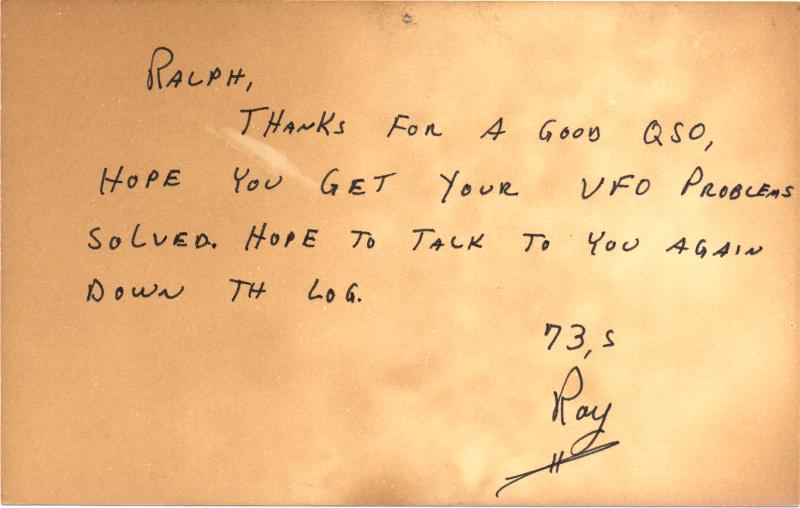 RALPH,
THANKS FOR A GOOD QSO,
HOPE YOU GET YOUR VFO PROBLEMS
SOLVED. HOPE TO TALK TO YOU AGAIN
DOWN TH LOG.
73,s
Ray